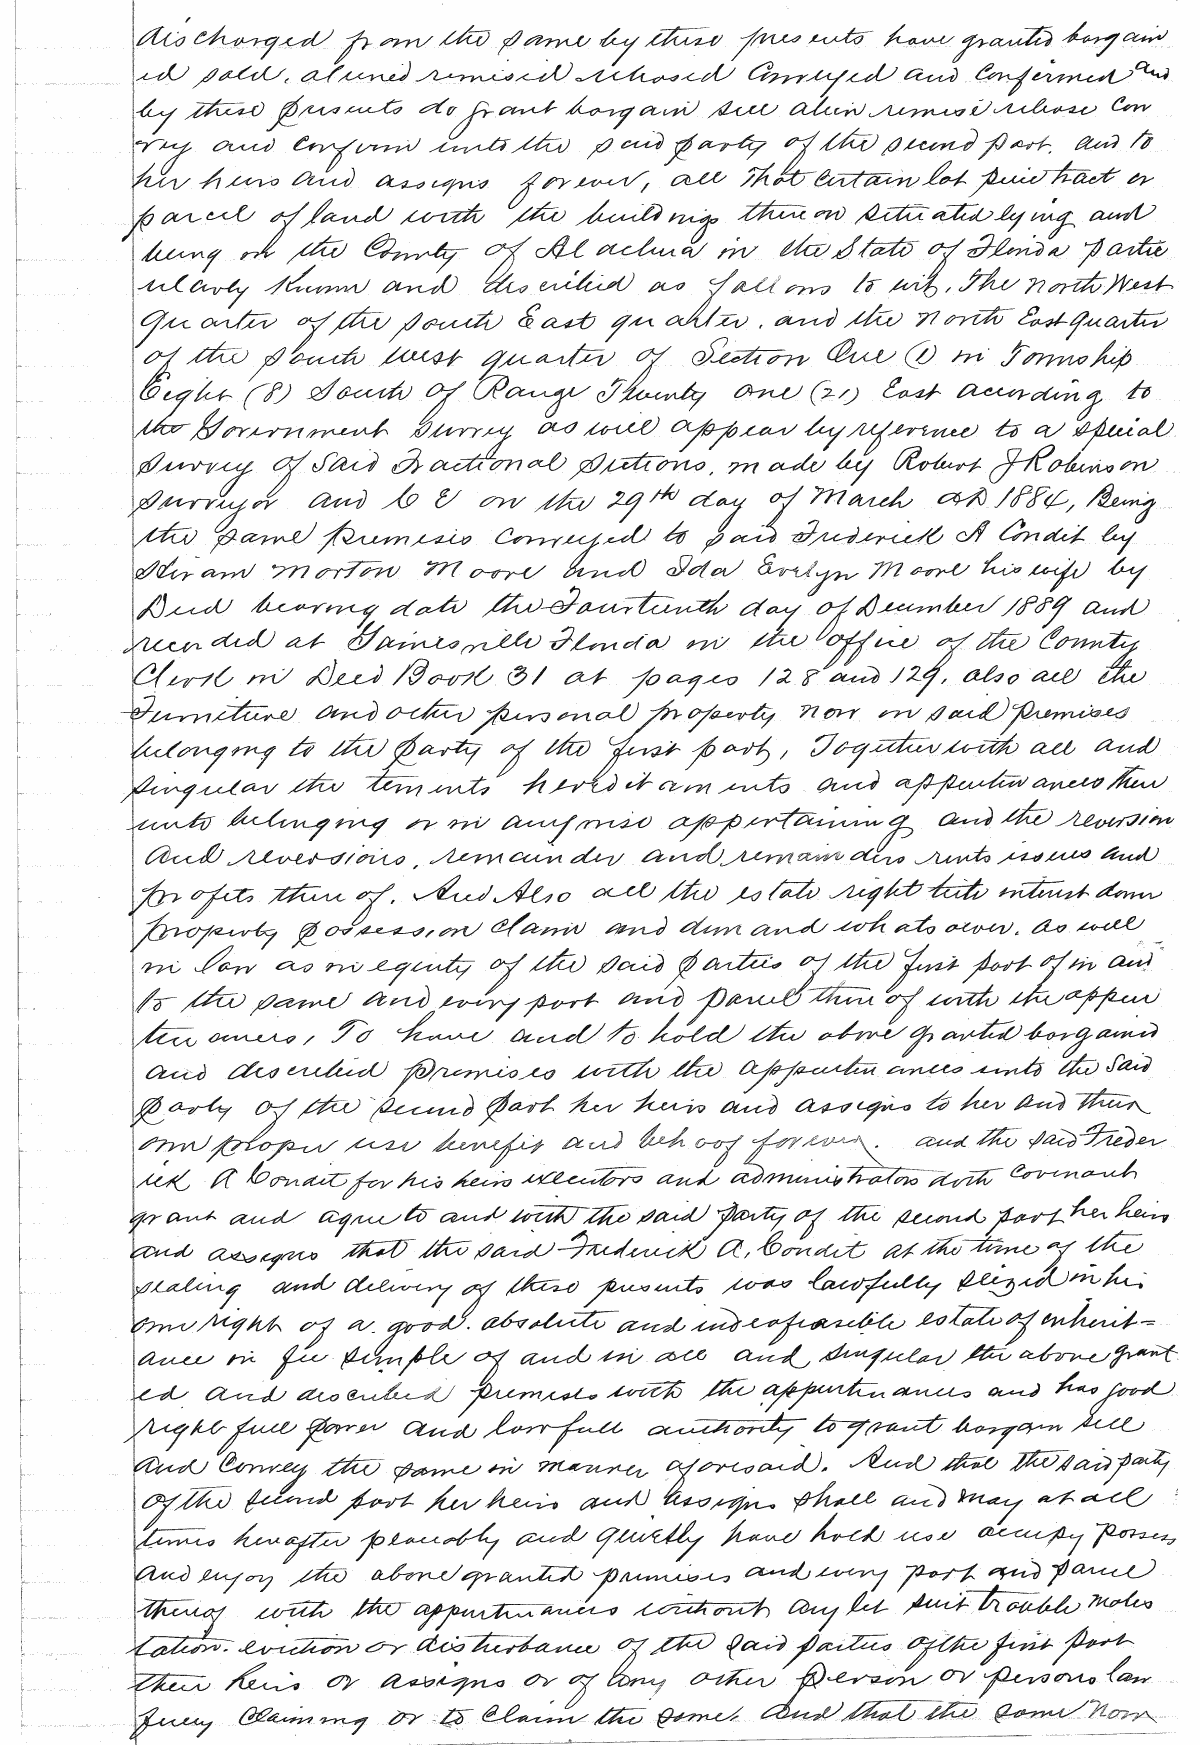 discharged from the same by these presents have granted bargain
ed sold. aliened remised released Conveyed and Confirmed and
by these presents do grant bargain sell alien remise release Con
vey and Confirm unto the said party of the second part. and to
her heirs and assigns forever, all that certain lot piece tract or
parcel of land with the buildings thereon situated lying and
being in the County of Alachua in the State of Florida partic
ularly Known and described as follows to wit. The North West
Quarter of the South East quarter. and the North East Quarter
of the South West quarter of Section One (1) in Township
Eight (8) South of Range Twenty one (21) East according to
the Government Survey as will appear by reference to a special
Survey of Said Fractional Sections, made by Robert J Robinson
Surveyor and C E on the 29th day of March AD 1884, Being
the same premises conveyed to said Frederick A Condit by
Hiram Morton Moore and Ida Evelyn Moore his wife by
Deed bearing date the Fourteenth day of December 1889 and
recorded at Gainesville Florida in the office of the County
Clerk in Deed Book 31 at pages 128 and 129. also all the
Furniture and other personal property now on said premises
belonging to the party of the first part, Together with all and
singular the tements heredit aments and appurtenances there
unto belonging or in anywise appertaining and the reversion
and reversions, remainder and remainders rents issues and
profits thereof. And Also all the estate right title interest dower
property possession claim and demand whatsoever. as well
in law as in equity of the said parties of the first part of in and
to the same and every part and parcel thereof with the appur
tenances, To have and to hold the above granted bargained
and described premises with the appurtenances unto the said
party of the second part her heirs and assigns to her and their
own proper use benefit and behoof forever. and the said Freder
ick A Condit for his heirs executors and administrators doth covenant
grant and agree to and with the said party of the second part her heirs
and assigns that the said Frederick A. Condit at the time of the
sealing and delivery of these presents was lawfully seized in his
own right of a. good. absolute and indefeasible estate of inherit=
ance in fee simple of and in all and singular the above grant
ed and described premises with the appurtenances and has good
right full power and lawfull authority to grant bargain sell
and Convey the same in manner aforesaid. And that the said party
of the second part her heirs and assigns shall and may at all
times hereafter peaceably and quietly have hold use occupy possess
and enjoy the above granted premises and every part and parcel
thereof with the appurtenances without any let suit trouble moles
tation. eviction or disturbance of the said parties of the first part
their heirs or assigns or of any other person or persons law
fully claiming or to claim the same. And that the same now